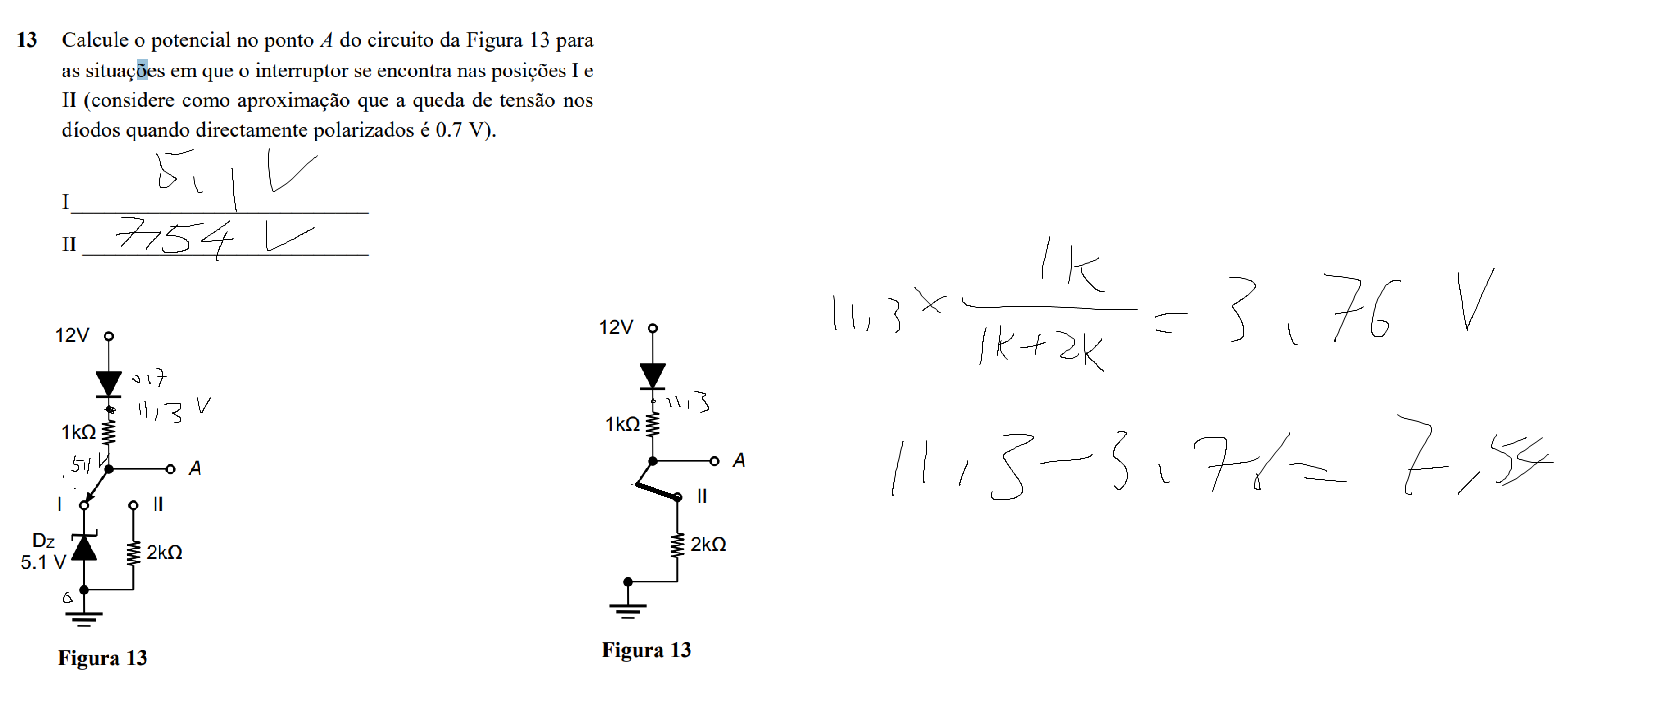 13 Calcule o potencial no ponto A do circuito da Figura 13 para
as situações em que o interruptor se encontra nas posições I e
II (considere como aproximação que a queda de tensão nos
díodos quando directamente polarizados é 0.7 V).
I 5,1 V
II 7,54 V
12V
0,7
11,3 V
1kΩ
5,1 V
A
I
II
Dz
5.1 V
2kΩ
0
Figura 13
12V
11,3
1kΩ
A
II
2kΩ
Figura 13
11,3 × 1k / 1k+2k = 3,76 V
11,3 - 3,76 = 7,54